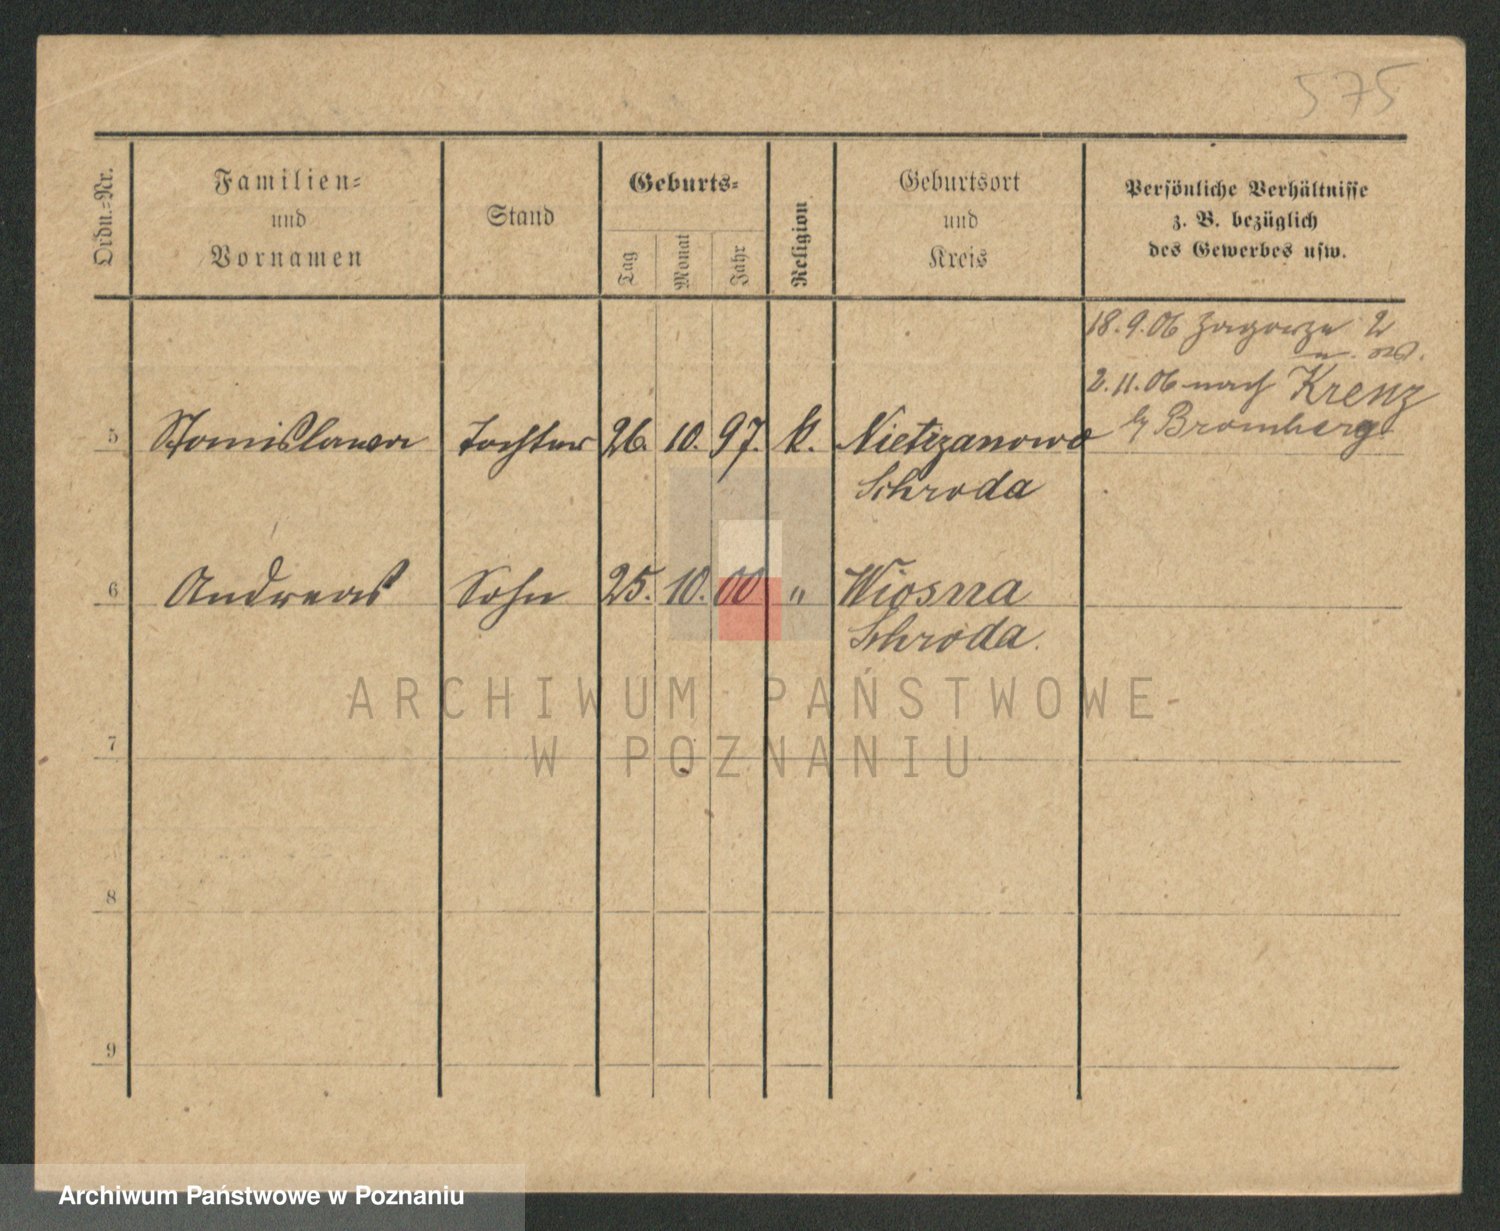 575
Ordn.-Nr.
Familien-
und
Vornamen
Stand
Geburts-
Tag
Monat
Jahr
Religion
Geburtsort
und
Kreis
Persönliche Verhältnisse
z. B. bezüglich
des Gewerbes usw.
18.9.06 Zagorze 2
2.11.06 nach Krenz
b/ Bromberg
5 Stanislawa Tochter 26. 10. 97. k. Nietrzanowo
Schroda
6 Andreas Sohn 25. 10. 00 " Wiosna
Schroda.
ARCHIWUM PAŃSTWOWE
W POZNANIU
7
8
9
Archiwum Państwowe w Poznaniu